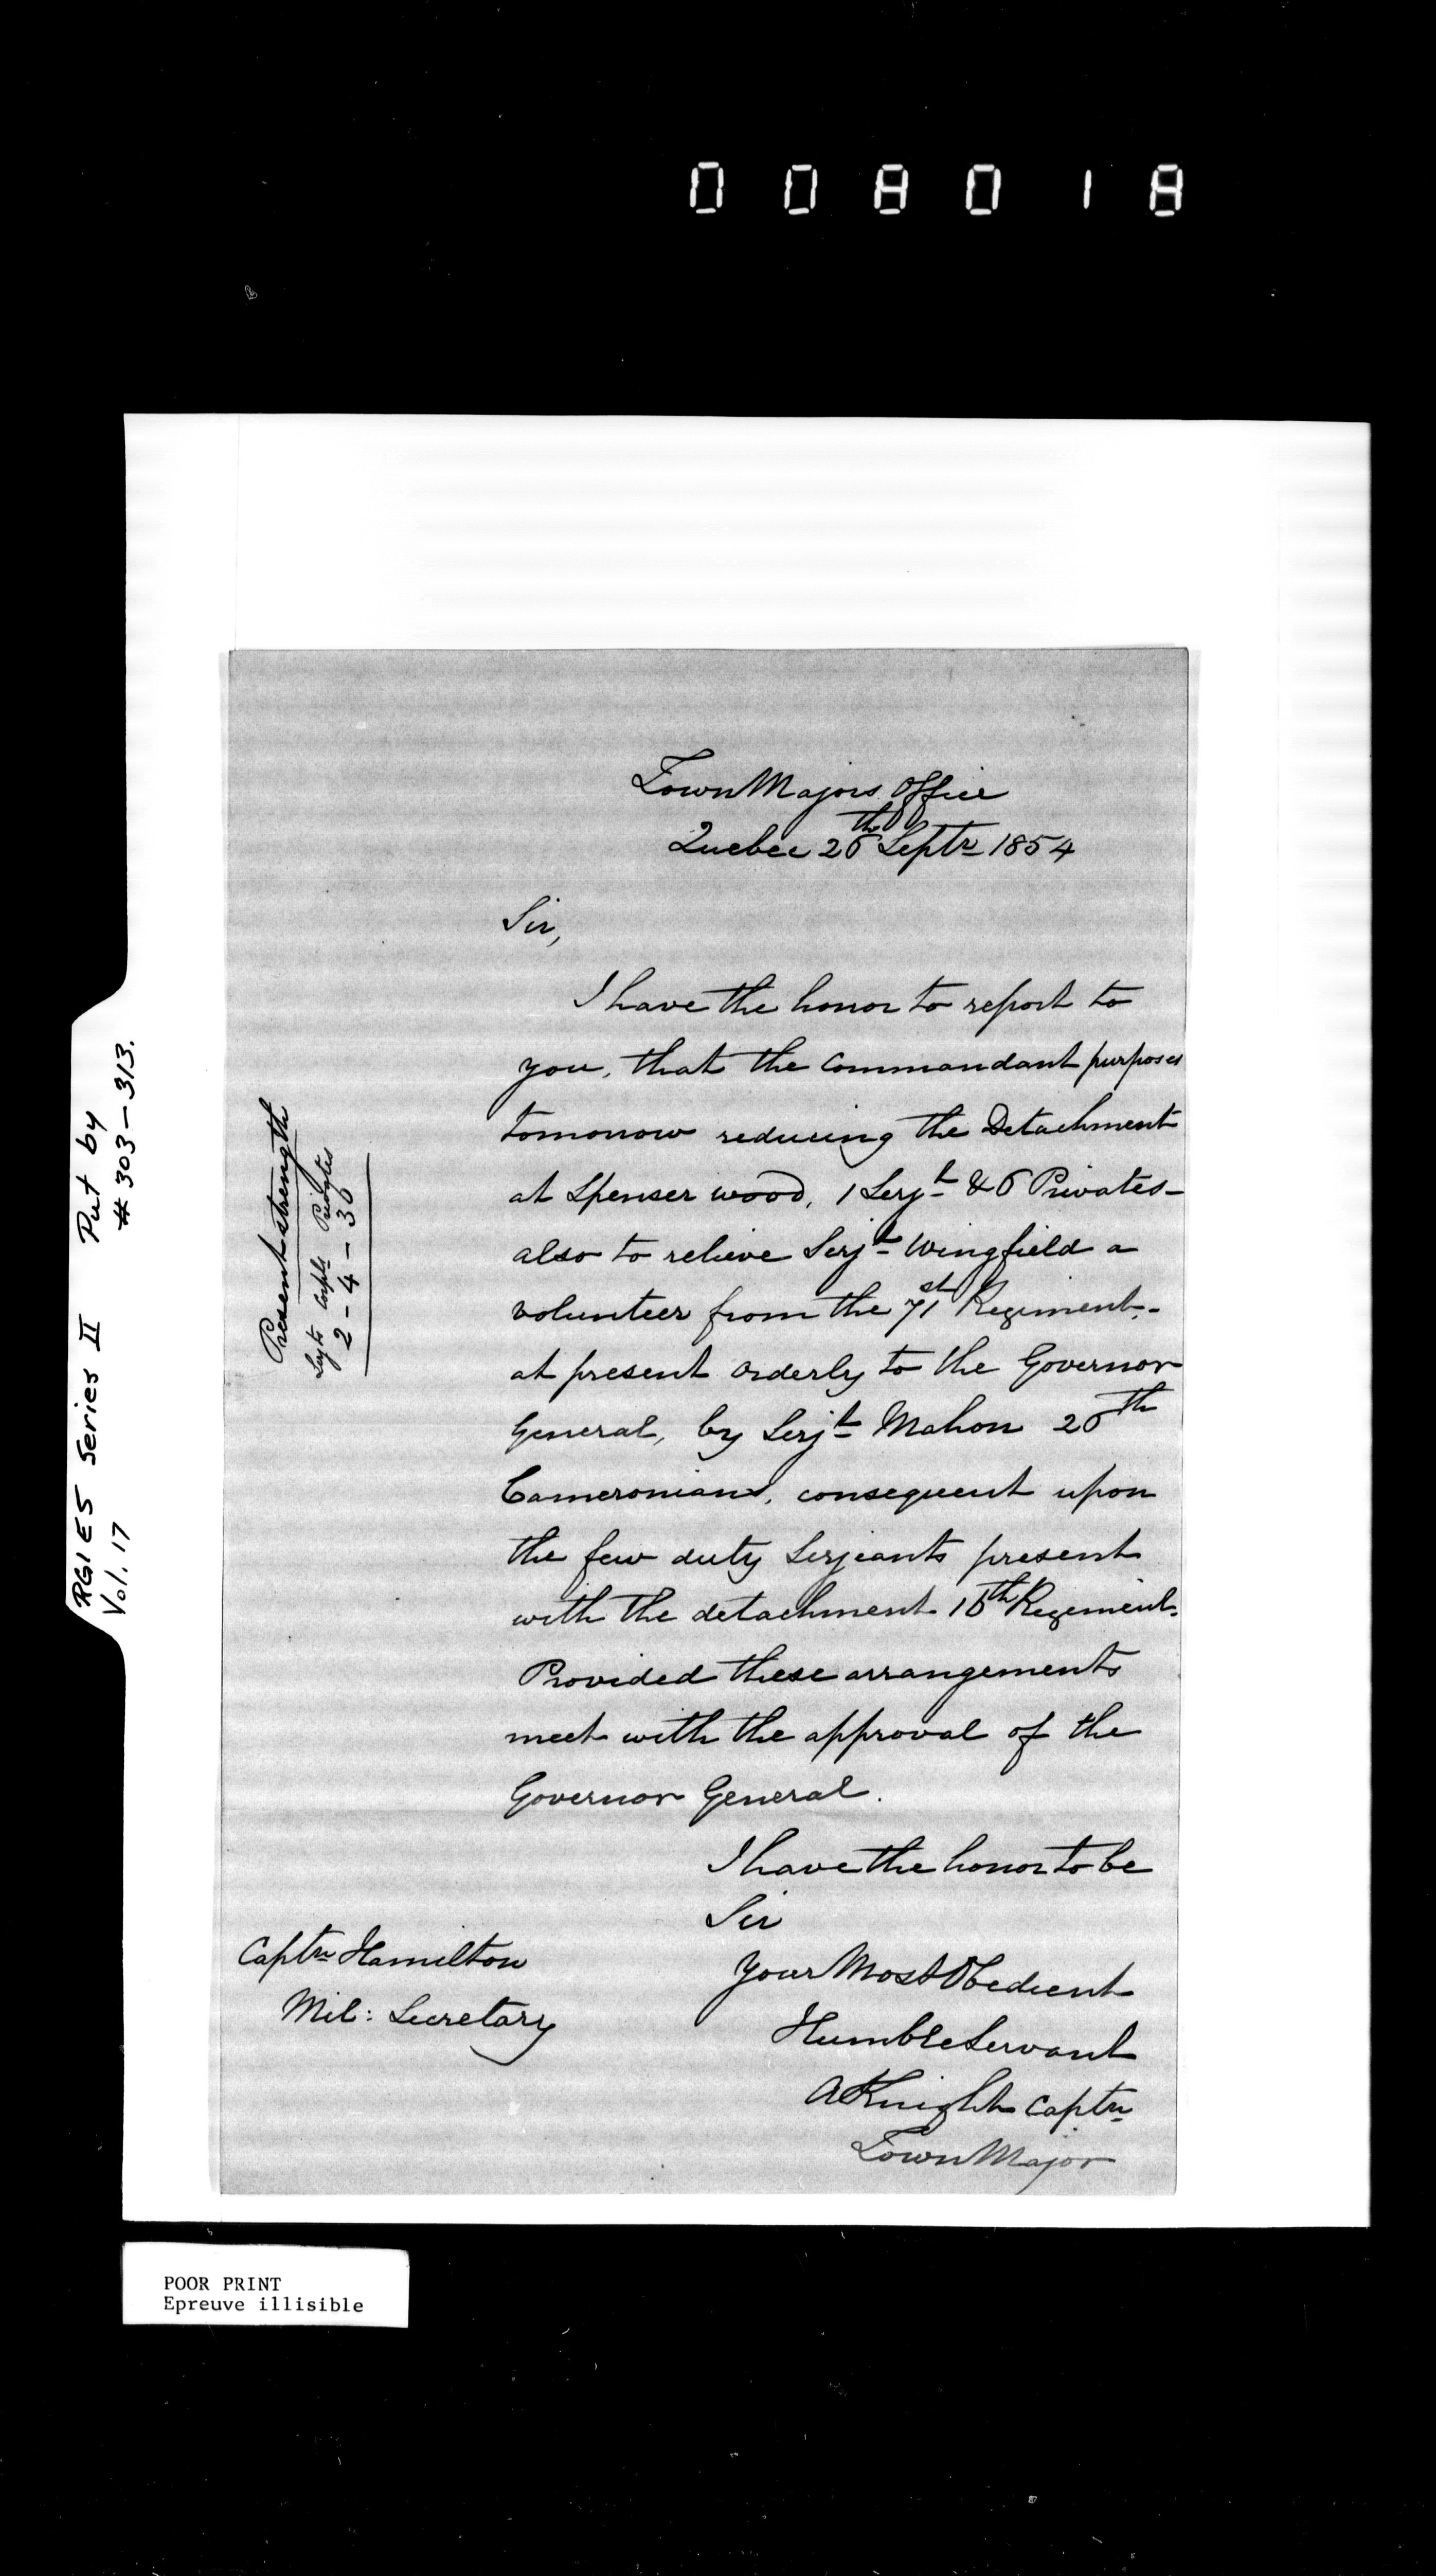 008018
RG1 E5 Series II Put by
Vol. 17 # 303-313.
Town Majors Office
Quebec 26th Septr 1854
Sir,
I have the honor to report to
you, that the Commandant purposes
tomorrow reducing the Detachment
at Spenser wood, 1 Serjt & 6 Privates -
also to relieve Serjt Wingfield a
volunteer from the 71st Regiment, -
at present Orderly to the Governor
General, by Serjt Mahon 26th
Cameronians, consequent upon
the few duty Serjeants present
with the detachment 16th Regiment.
Provided these arrangements
meet with the approval of the
Governor General.
I have the honor to be
Sir
Your Most Obedient
Humble Servant
A Knight Captn
Town Major
Captn Hamilton
Mil: Secretary
Present strength
Serjts Corpls Privates
2 - 4 - 36
POOR PRINT
Epreuve illisible